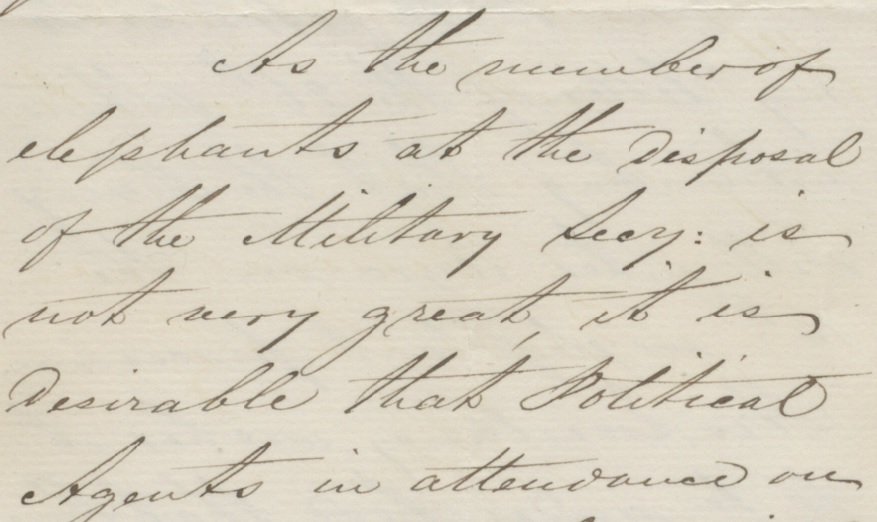 As the number of
elephants at the disposal
of the Military Secy: is
not very great, it is
desirable that Political
Agents in attendance on